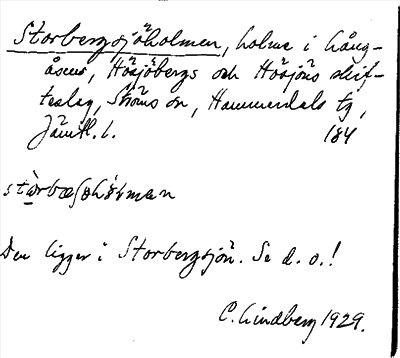 Storbergsjöholmen, holme i Lång-
åsens, Hösjöbergs och Hösjöns skif-
teslag, Ströms sn, Hammerdals tg,
Jämtl. l. 184
Den ligger i Storbergsjön. Se d. o.!
C. Lindberg 1929.